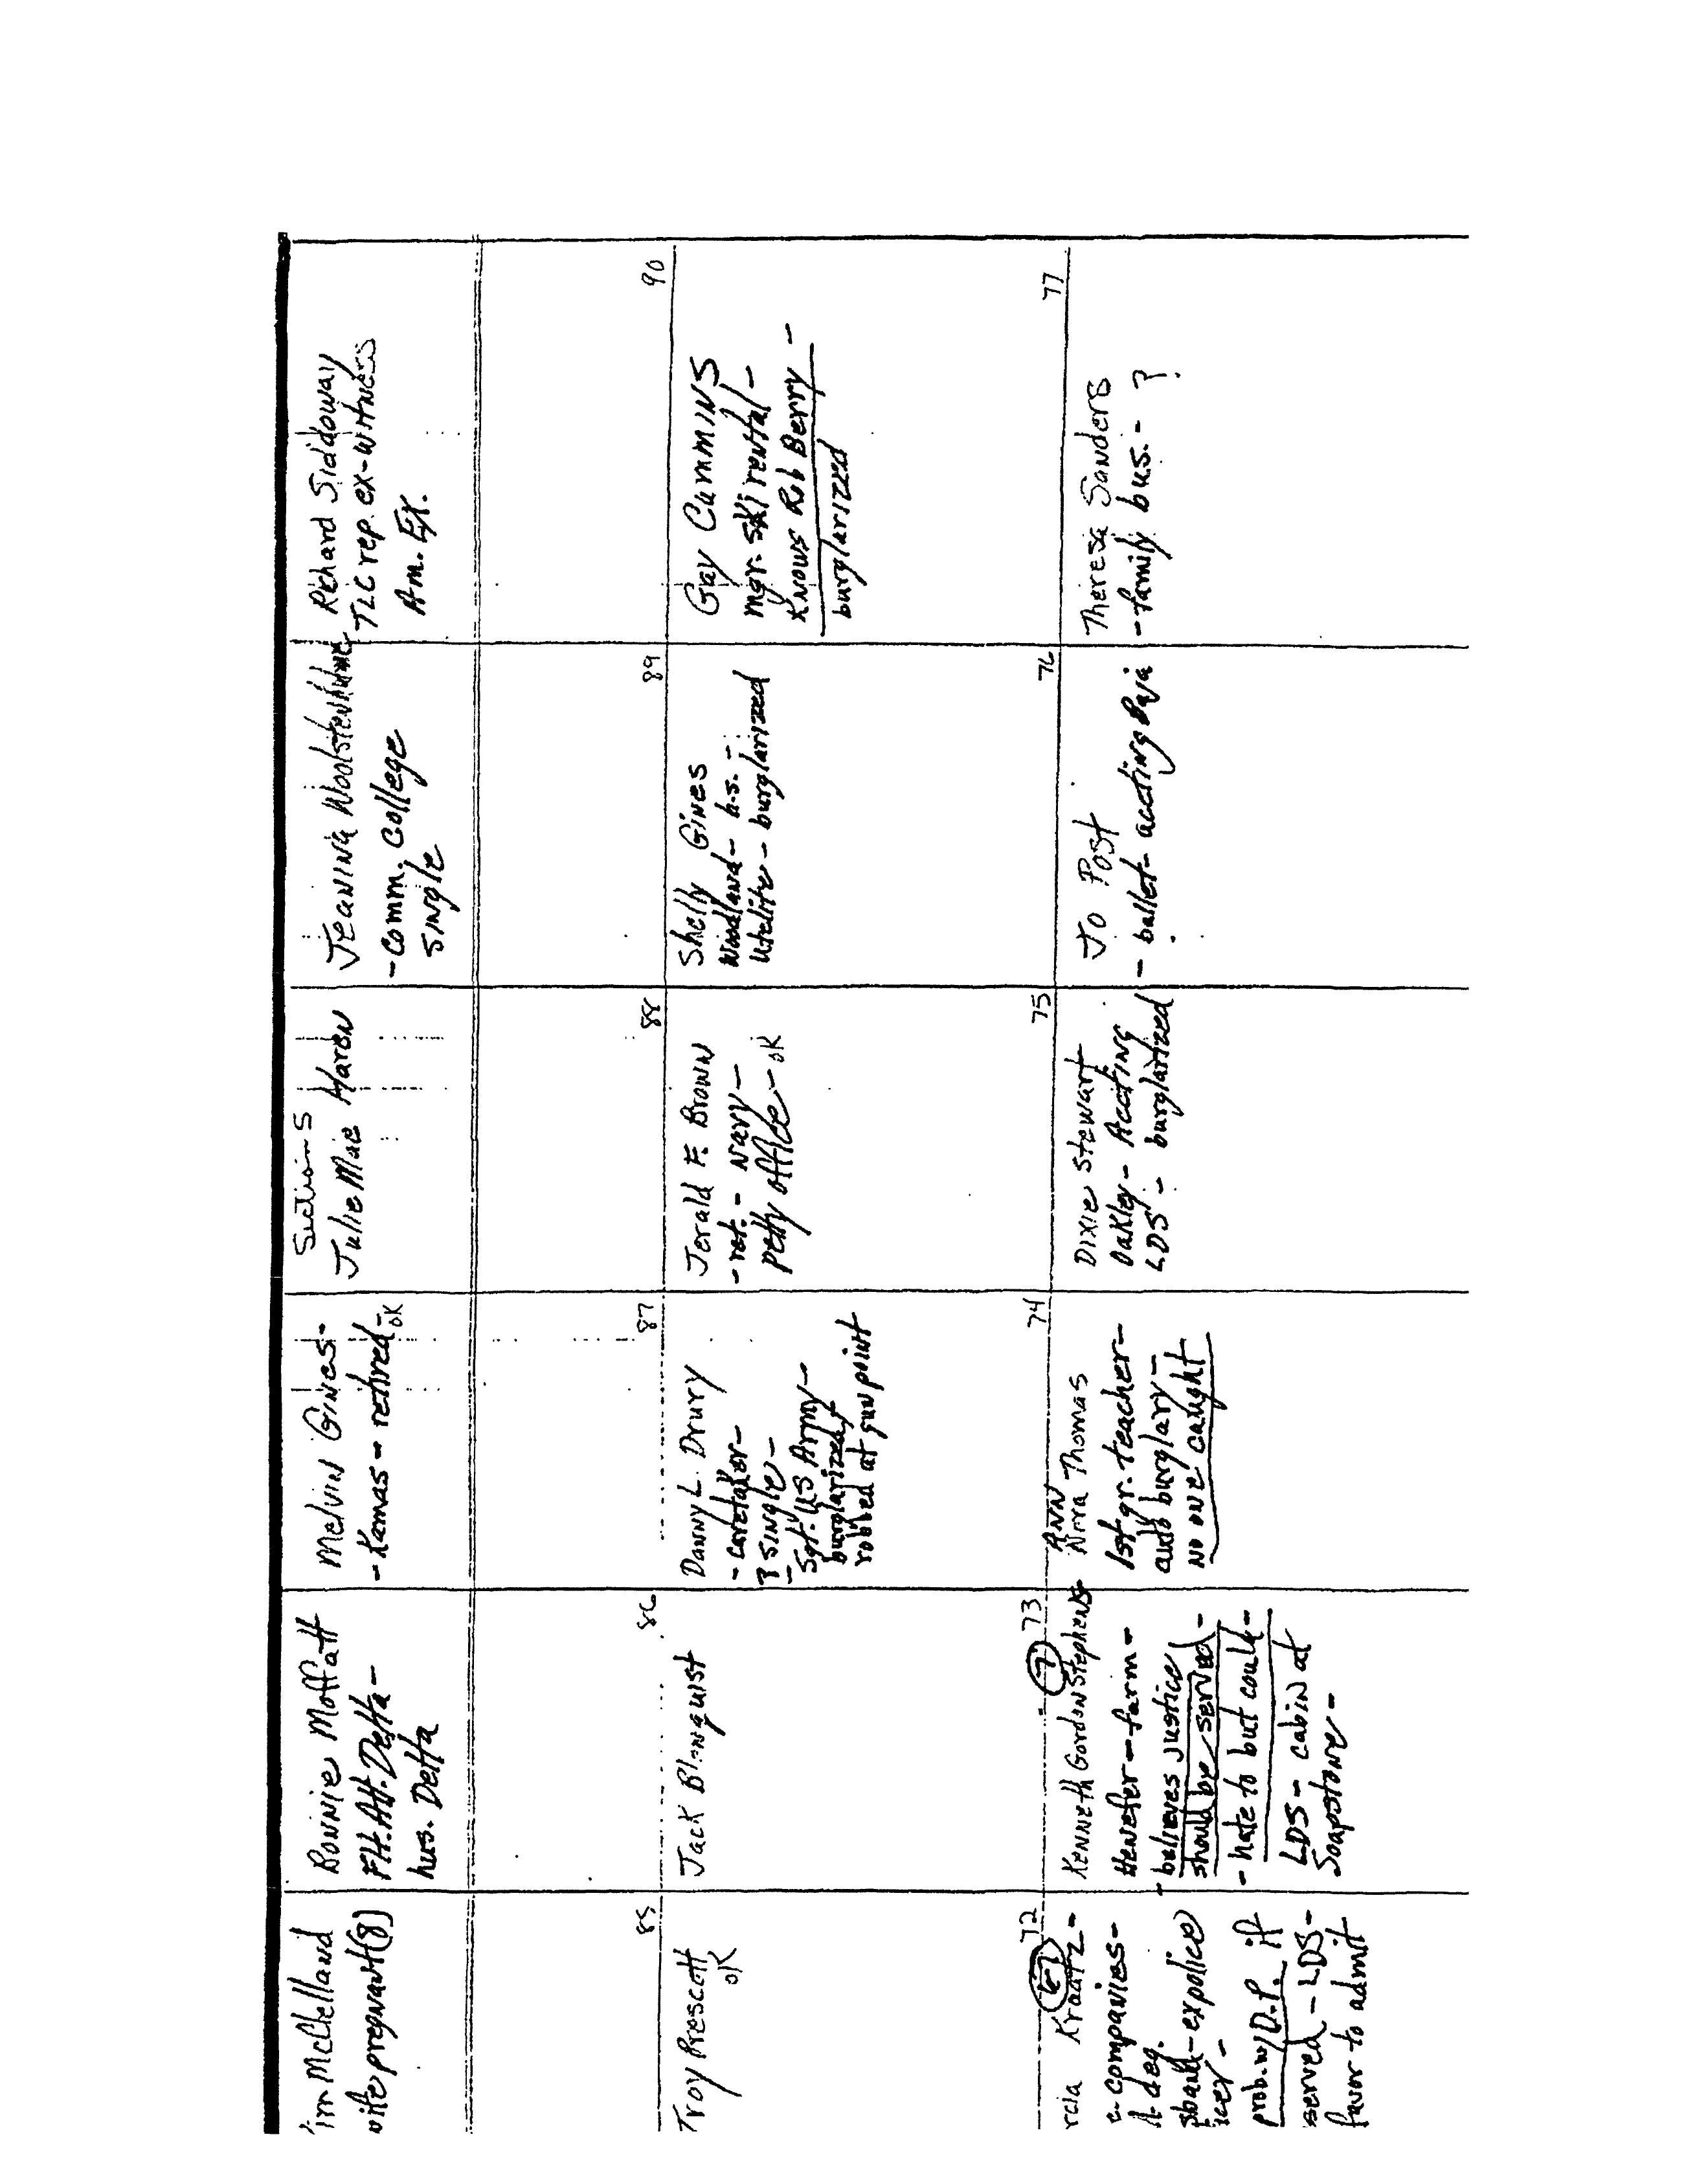 Sections
im McClelland
wife pregnant (8)
Bonnie Moffatt
Flt. Att. Delta -
hus. Delta
Melvin Gines -
- Kamas - retired - ok
Julie Mae Aaron
Jeanina Woolstenhulme
- Comm. College
single
Richard Siddoway
TLC rep. ex-witness
Am. Ex.
85
Troy Prescott
ok
86
Jack Blonquist
87
Danny L. Drury
- caretaker -
? single -
- Sgt. US Army -
burglarized,
robbed at gun point
88
Jerald F. Brown
- ret. - Navy -
petty office - ok
89
Shelly Gines
Woodland - h.s. -
Utelite - burglarized
90
Gay Cummins
mgr. ski rental -
knows Rob Berry -
burglarized
72
rcia Kraatz -
companies -
deg.
sband - expolice
icer -
prob. w/ D.P. if
served - LDS -
favor to admit
7
73
Kenneth Gordon Stephens
Henefer - farm -
- believes justice
should be served -
- hate to but could -
LDS - cabin at
Soapstone -
74
Ann
Nora Thomas
1st gr. teacher -
auto burglary -
no one caught
75
Dixie Stewart
Oakley - Accting
LDS - burglarized
76
Jo Post
- ballet - accting Baja
77
Theresa Sanders
- family bus. - ?